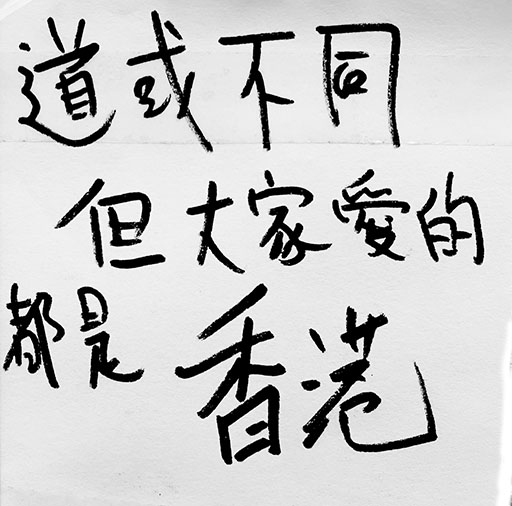 道或不同
但大家愛的
都是香港